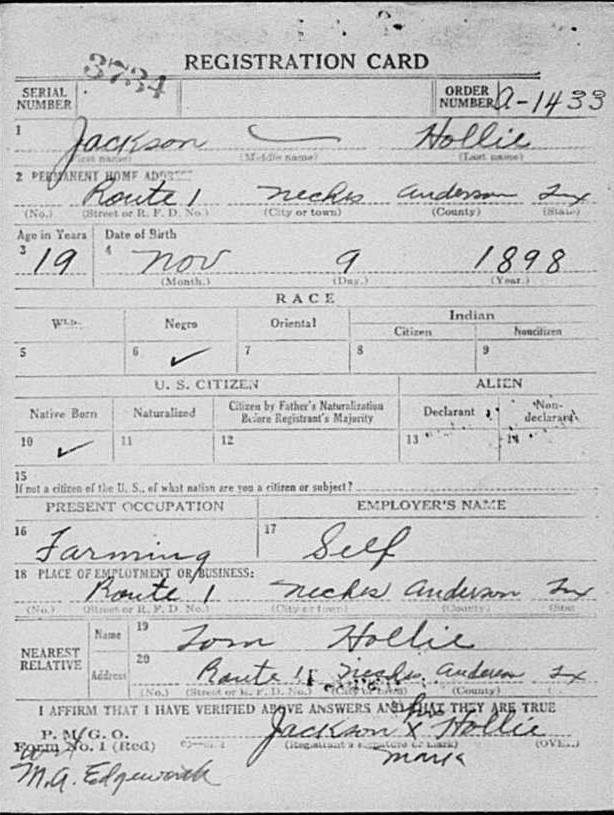 3734
REGISTRATION CARD
SERIAL NUMBER
ORDER NUMBER A-1433
1 Jackson — Hollie
(First name) (Middle name) (Last name)
2 PERMANENT HOME ADDRESS
Route 1 Neches Anderson Tex
(No.) (Street or R. F. D. No.) (City or town) (County) (State)
Age in Years Date of Birth
3 19 4 Nov 9 1898
(Month.) (Day.) (Year.)
RACE
White Negro Oriental Indian
Citizen Noncitizen
5 6 ✓ 7 8 9
U. S. CITIZEN ALIEN
Native Born Naturalized Citizen by Father's Naturalization Before Registrant's Majority Declarant Non-declarant
10 ✓ 11 12 13 14
15
If not a citizen of the U. S., of what nation are you a citizen or subject?
PRESENT OCCUPATION EMPLOYER'S NAME
16 Farming 17 Self
18 PLACE OF EMPLOYMENT OR BUSINESS:
Route 1 Neches Anderson Tex
(No.) (Street or R. F. D. No.) (City or town) (County) (State
NEAREST RELATIVE
Name 19 Tom Hollie
Address 20 Route 1 Neches Anderson Tex
(No.) (Street or R. F. D. No.) (City or town) (County)
I AFFIRM THAT I HAVE VERIFIED ABOVE ANSWERS AND THAT THEY ARE TRUE
P. M. G. O.
Form No. 1 (Red)
his
Jackson X Hollie
(Registrant's signature or mark) (OVER)
mark
Wit
M.A. Edgeworth